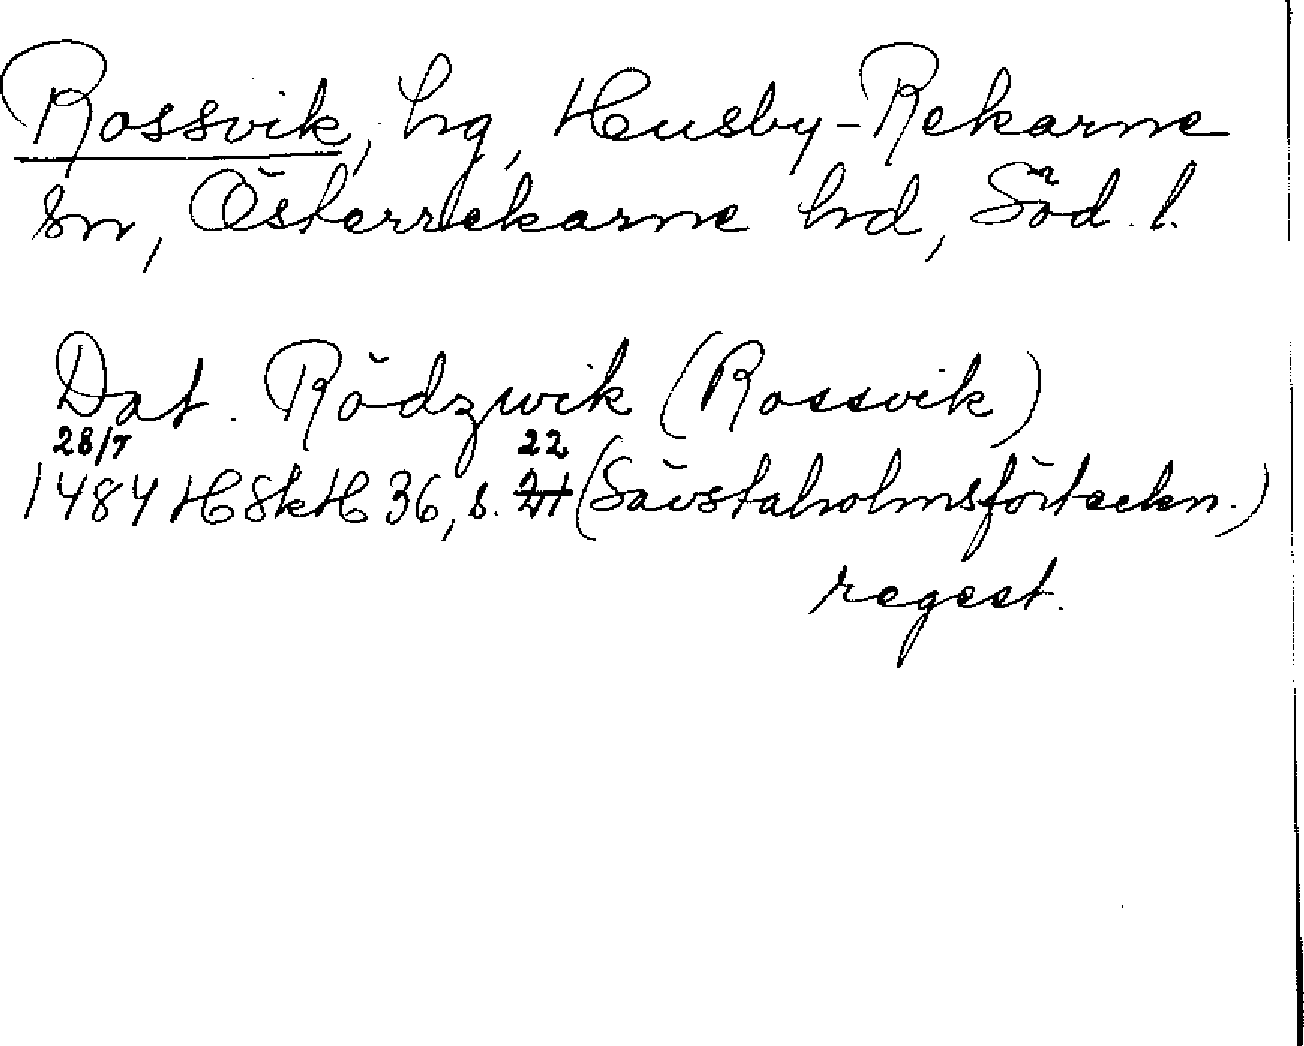 Rossvik, hg, Husby-Rekarne
sn, Österrekarne hd, Söd. l.
Dat. Rödzwik (Rossvik)
28/7 22
1484 HSkH 36, s. 21 (Sävstaholmsförteckn.)
regest.